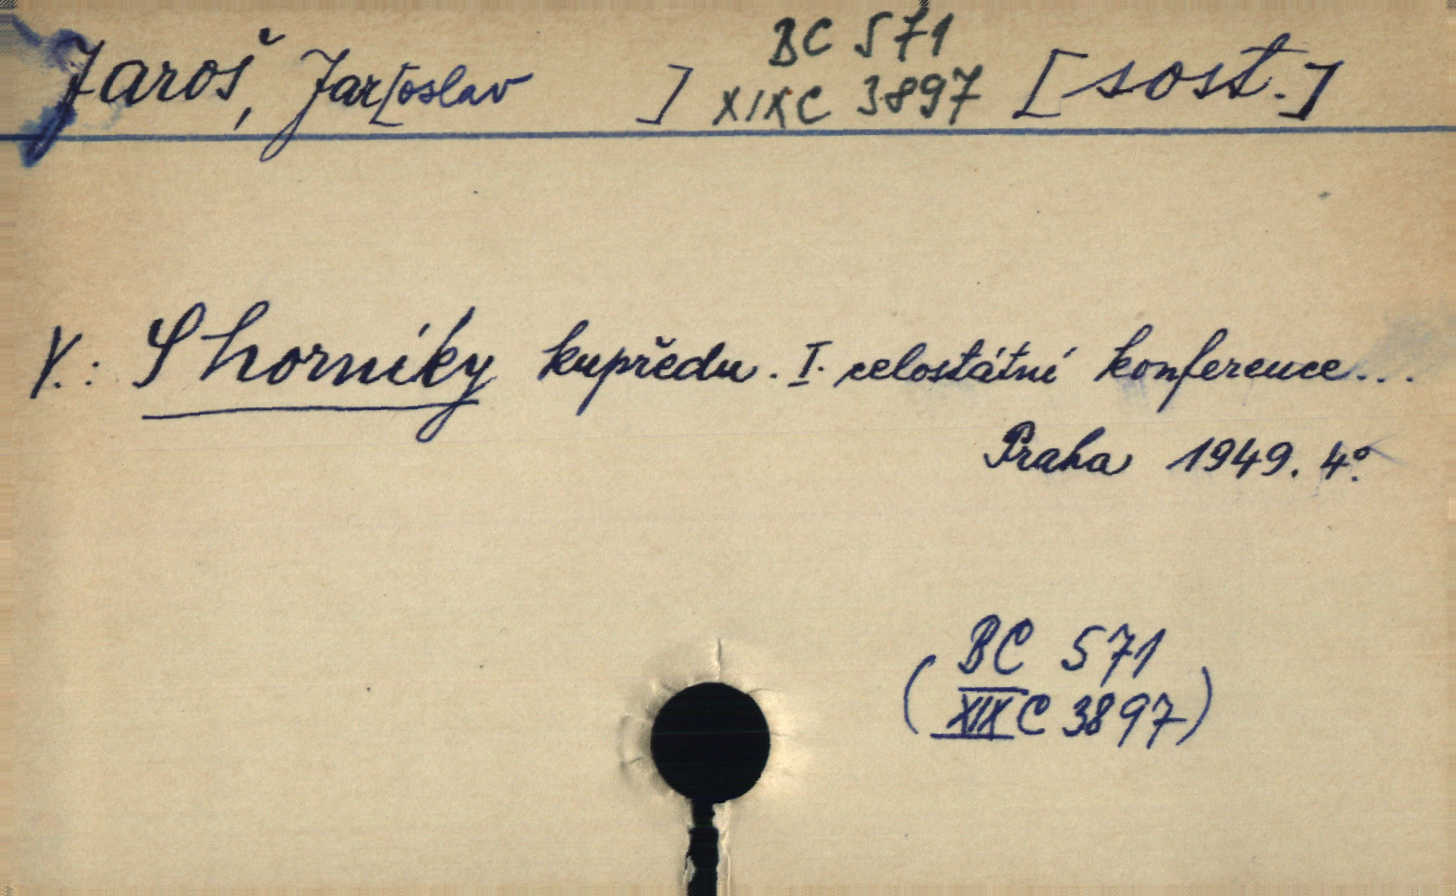 Jaroš, Jar[oslav ] BC 571
XIXC 3897 [sost.]
V.: S horníky kupředu. I. celostátní konference...
Praha 1949. 4°.
(BC 571
XIX C 3897)